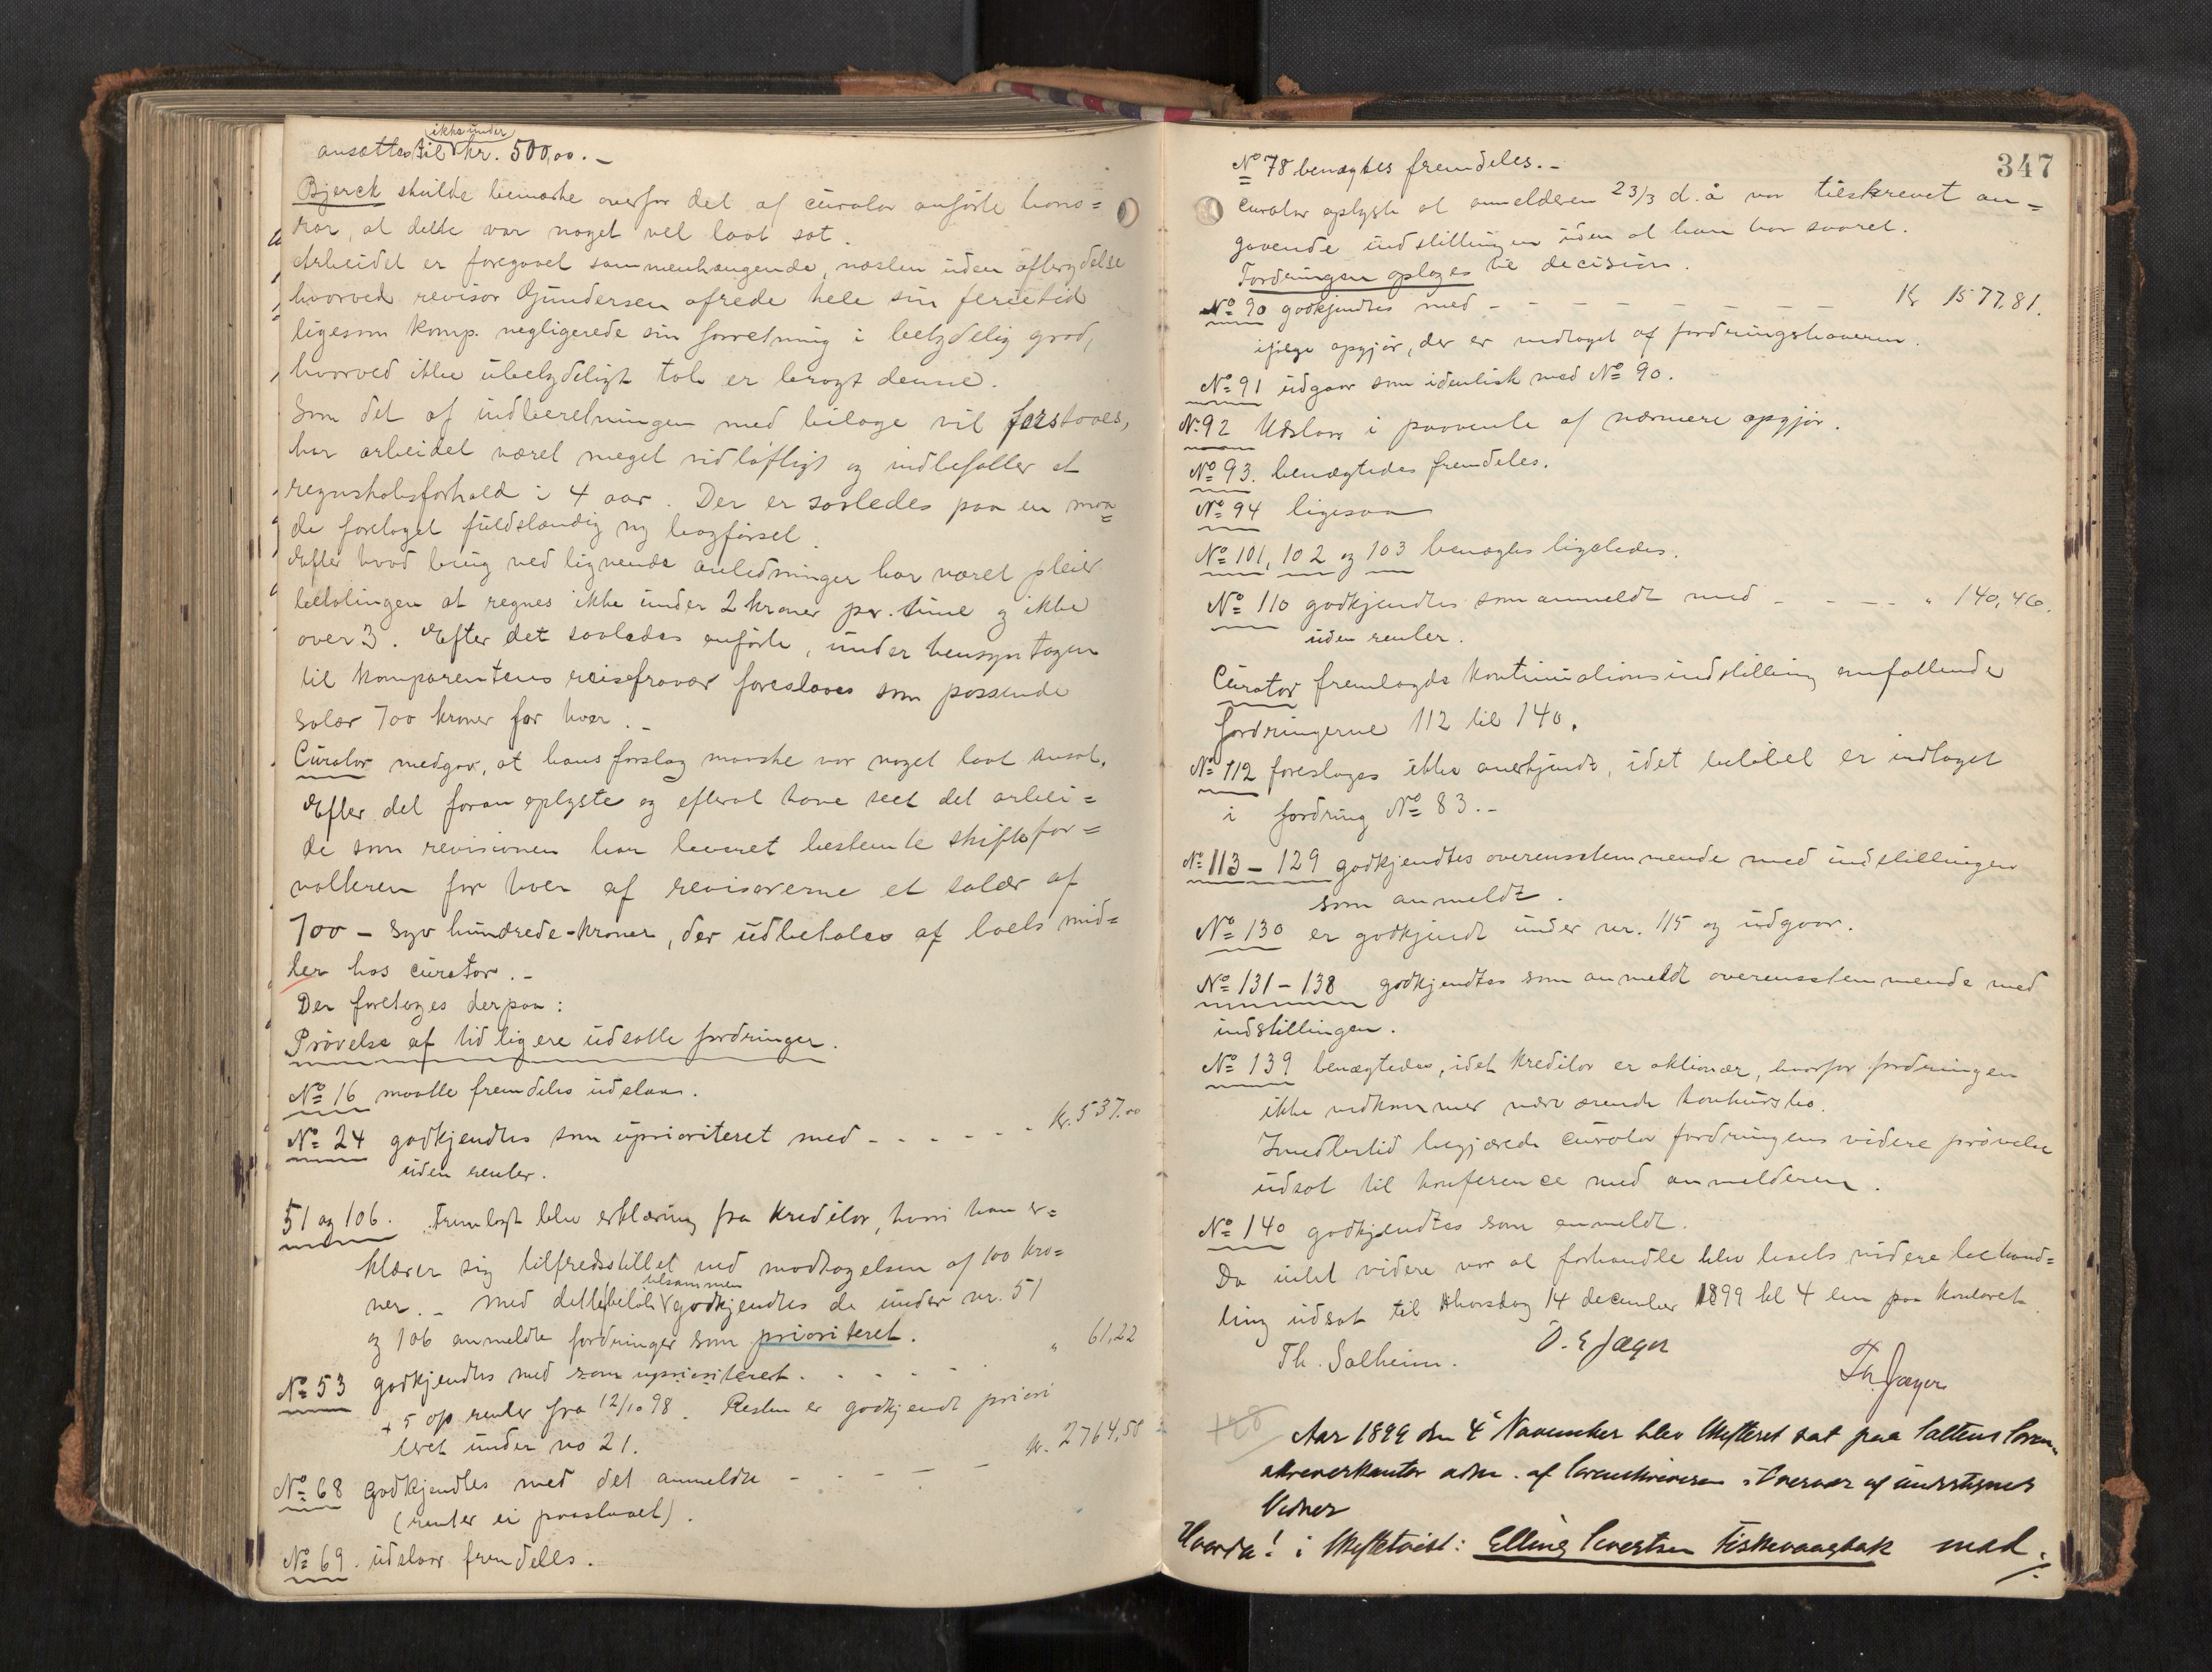 ikke under
ansættes til kr. 500,00. –
Bjerck skulde bemærke overfor det af curator anførte hono=
rar, at dette var noget vel lavt sat.
Arbeidet er foregaaet sammenhængende, næsten uden afbrydelse
hvorved revisor Gundersen ofrede hele sin ferietid
ligesom komp. negligerede sin forretning i betydelig grad,
hvorved ikke ubetydeligt tab er bragt denne.
Som det af indberetningen med bilage vil forstaaes,
har arbeidet været meget vidløftigt og indbefatter et
regnskabsforhold i 4 aar. Der er saaledes paa en maa=
de foretaget fuldstændig ny bogførsel.
Efter hvad brug ved lignende anledninger har været pleier
betalingen at regnes ikke under 2 kroner pr. time og ikke
over 3. Efter det saaledes anførte, under hensyntagen
til komparentens reisefravær foreslaaes som passende
salær 700 kroner for hver. –
Curator medgav, at hans forslag maaske var noget lavt ansat.
Efter det foran oplyste og efterat have seet det arbei=
de som revisionen har leveret bestemte skiftefor=
valteren for hver af revisorerne et salær af
700 – syv hundrede – kroner, der udbetales af boets mid=
ler hos curator. –
Der foretages derpaa:
Prøvelse af tidligere udsatte fordringer.
No 16 maatte fremdeles udstaa.
No 24 godkjendtes som uprioriteret med – – – – – – kr. 537.00
uden renter.
51 og 106. Fremlagt blev erklæring fra kreditor, hvori han er=
klærer sig tilfredsstillet ved modtagelsen af 100 kro=
ner. – Med dette beløb tilsammen godkjendtes de under nr. 51
og 106 anmeldte fordringer som prioriteret.
No 53 godkjendtes med som uprioriteret . . . . – . " 61,22
+ 5 op renter fra 12/10 98. Resten er godkjendt priori
teret under no 21.
No 68 godkjendtes med det anmeldte – – – – – kr. 2764,58
(renter ei paastaaet).
No 69. udstaar fremdeles.
347
No 78 benægtes fremdeles. –
Curator oplyste at anmelderen 23/3 d. å var tilskrevet an=
gaaende indstillingen uden at han har svaret.
Fordringen optages til decision.
No 90 godkjendtes med – – – – – – – – Kr 1577,81.
ifølge opgjør, der er vedtaget af fordringshaveren.
No 91 udgaar som identisk med No 90.
No 92 Udstaar i paavente af nærmere opgjør.
No 93. benægtedes fremdeles.
No 94 ligesaa
No 101, 102 og 103 benægtes ligeledes.
No 110 godkjendtes som anmeldt med – – – – " 140,46.
uden renter.
Curator fremlagde kontinuationsindstilling omfattende
fordringerne 112 til 140.
No 112 foreslages ikke anerkjendt, idet beløbet er indtaget
i fordring No 83. –
No 113 – 129 godkjendtes overensstemmende med indstillingen
som anmeldt.
No 130 er godkjendt under nr. 115 og udgaar.
No 131 – 138 godkjendtes som anmeldt overensstemmende med
indstillingen.
No 139 benægtedes, idet kreditor er aktionær, hvorfor fordringen
ikke vedkommer nærværende konkursbo.
Imidlertid begjærede curator fordringens videre prøvelse
udsat til konference med anmelderen.
No 140 godkjendtes som anmeldt.
Da intet videre var at forhandle blev boets videre behand=
ling udsat til thorsdag 14 december 1899 kl 4 em paa kontoret
Th. Solheim. O. E Jæger
Th. Jæger
Aar 1899 den 4 November blev Skifteret sat paa Saltens Soren=
skriverkontor adm. af Sorenskriveren i Overvær af undertegnede
Vidner
Hvorda! i Skiftetvist: Elling Sivertsen Fiskevaagbak mod